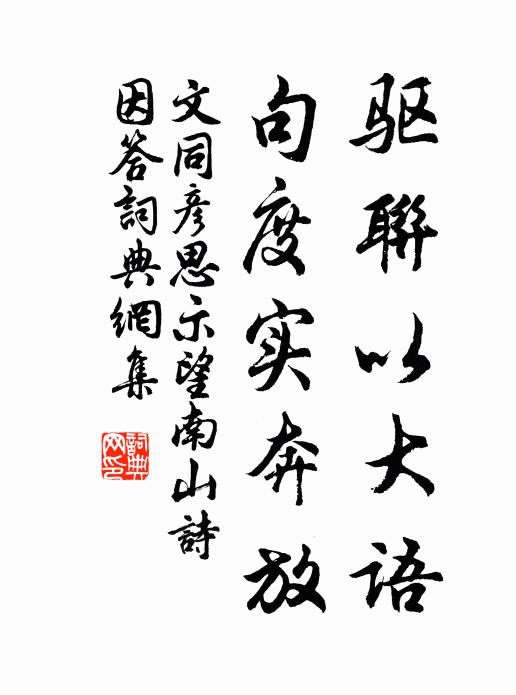 驱聯以大语
句度实奔放
文同彦思示望南山詩
因答詞典網集
詞典網印